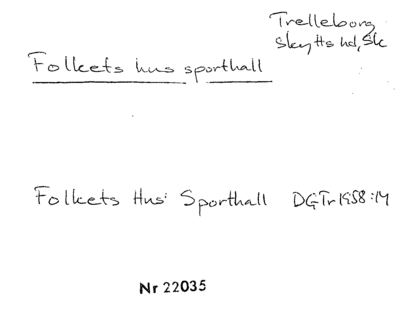 Trelleborg
Skytts hd, Sk
Folkets hus sporthall
Folkets Hus' Sporthall DGTr 1958:14
Nr 22035